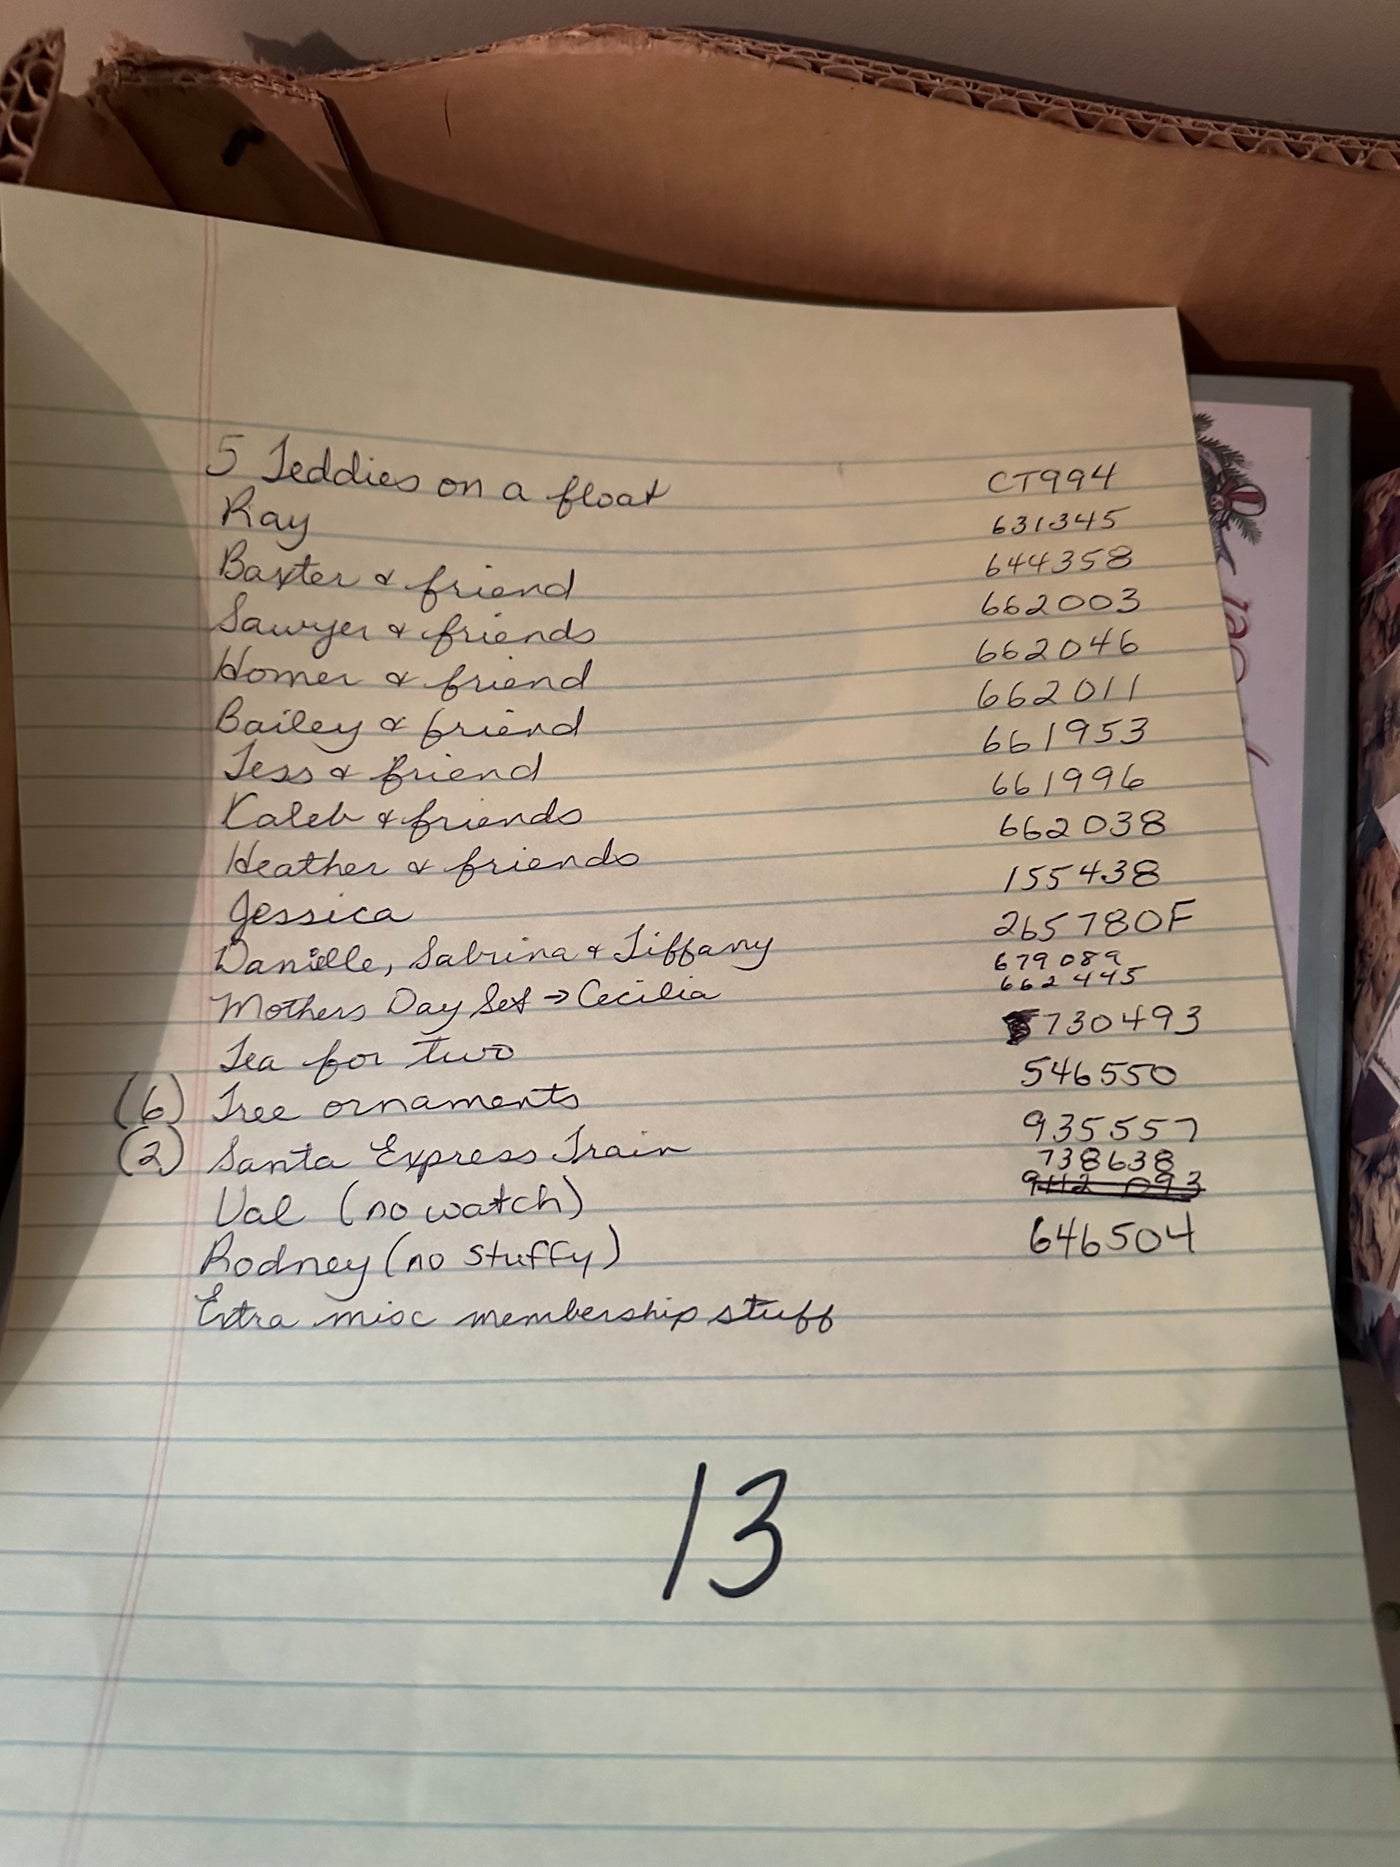 5 Teddies on a float CT994
Ray 631345
Baxter & friend 644358
Sawyer & friends 662003
Homer & friend 662046
Bailey & friend 662011
Tess & friend 661953
Kaleb & friends 661996
Heather & friends 662038
Jessica 155438
Danielle, Sabrina & Tiffany 265780F
679089
Mothers Day Set → Cecilia 662445
Tea for two 730493
(6) Tree ornaments 546550
(2) Santa Express Train 935557
738638
Val (no watch)
Rodney (no stuffy) 646504
Extra misc membership stuff
13